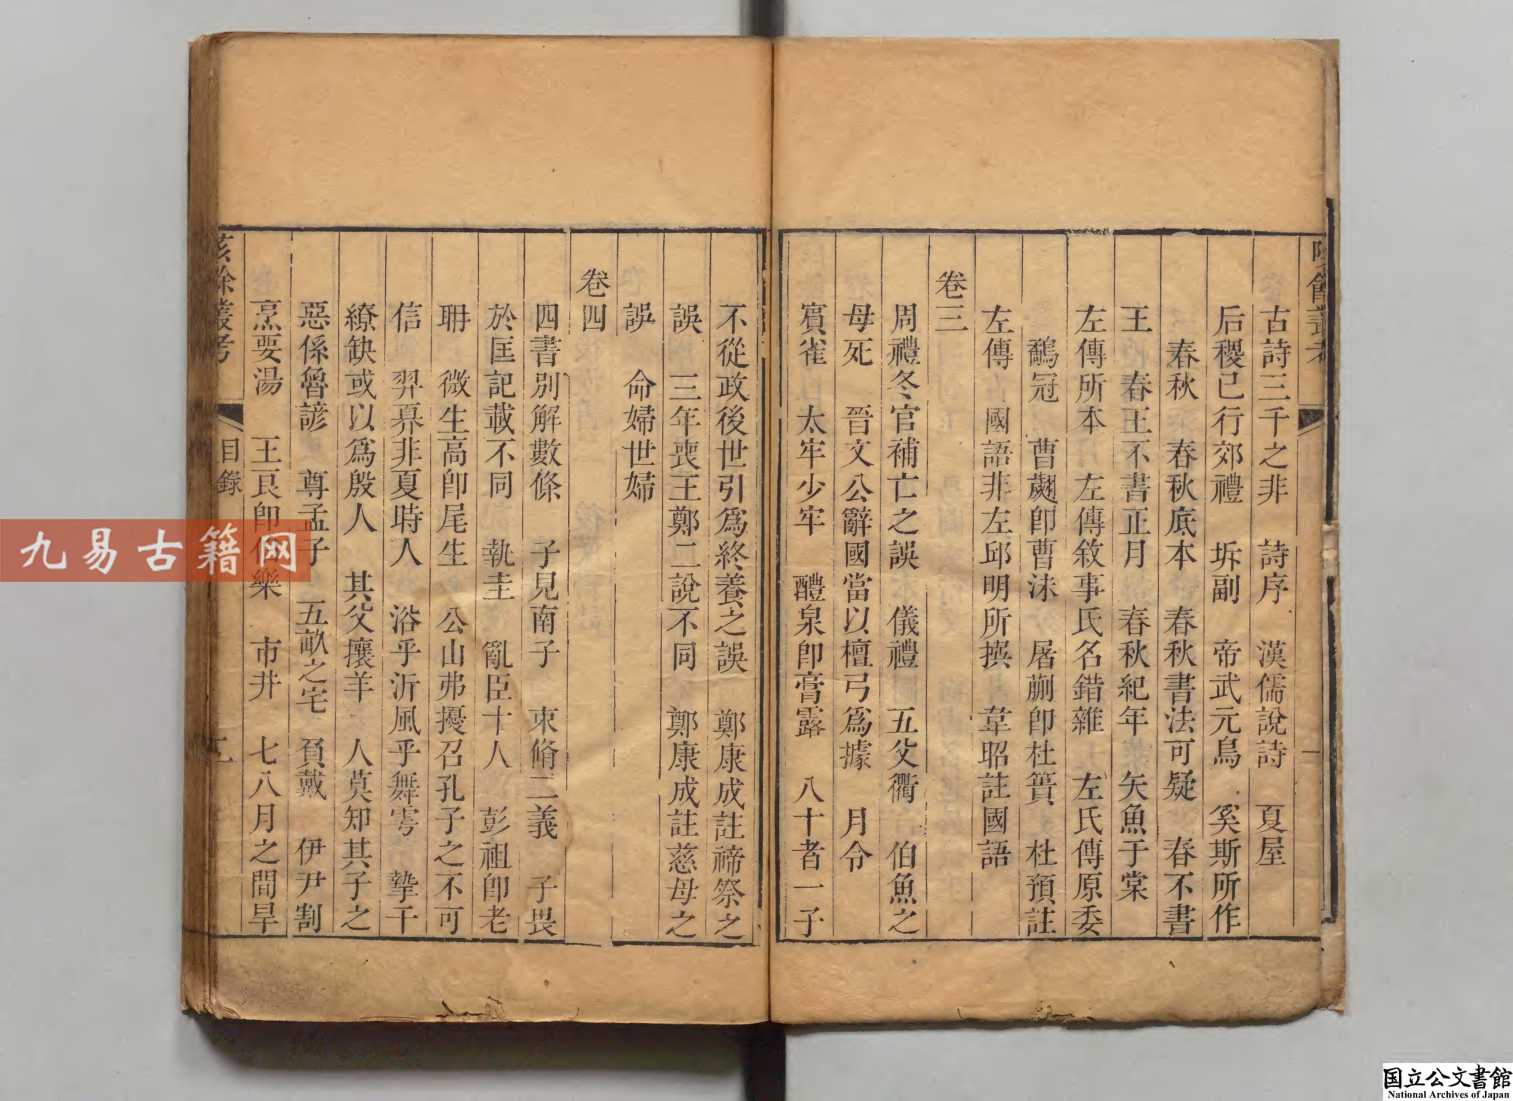 陔餘叢考
一
古詩三千之非　詩序　漢儒說詩　夏屋
后稷已行郊禮　坼副　帝武元鳥　奚斯所作
春秋　春秋底本　春秋書法可疑　春不書
王　春王不書正月　春秋紀年　矢魚于棠
左傳所本　左傳敘事氏名錯雜　左氏傳原委
鷸冠　曹翽卽曹沬　屠蒯卽杜蕢　杜預註
左傳　國語非左邱明所撰　韋昭註國語
卷三
周禮冬官補亡之誤　儀禮　五父衢　伯魚之
母死　晉文公辭國當以檀弓爲據　月令
賓雀　太牢少牢　醴泉卽膏露　八十者一子
不從政後世引爲終養之誤　鄭康成註禘祭之
誤　三年喪王鄭二說不同　鄭康成註慈母之
誤　命婦世婦
卷四
四書別解數條　子見南子　束脩二義　子畏
於匡記載不同　執圭　亂臣十人　彭祖卽老
聃　微生高卽尾生　公山弗擾召孔子之不可
信　羿奡非夏時人　浴乎沂風乎舞雩　摯干
繚缺或以爲殷人　其父攘羊　人莫知其子之
惡係魯諺　尊孟子　五畝之宅　頁戴　伊尹割
烹要湯　王良卽伯樂　市井　七八月之間旱
陔餘叢考
目錄
二
九易古籍网
国立公文書館
National Archives of Japan